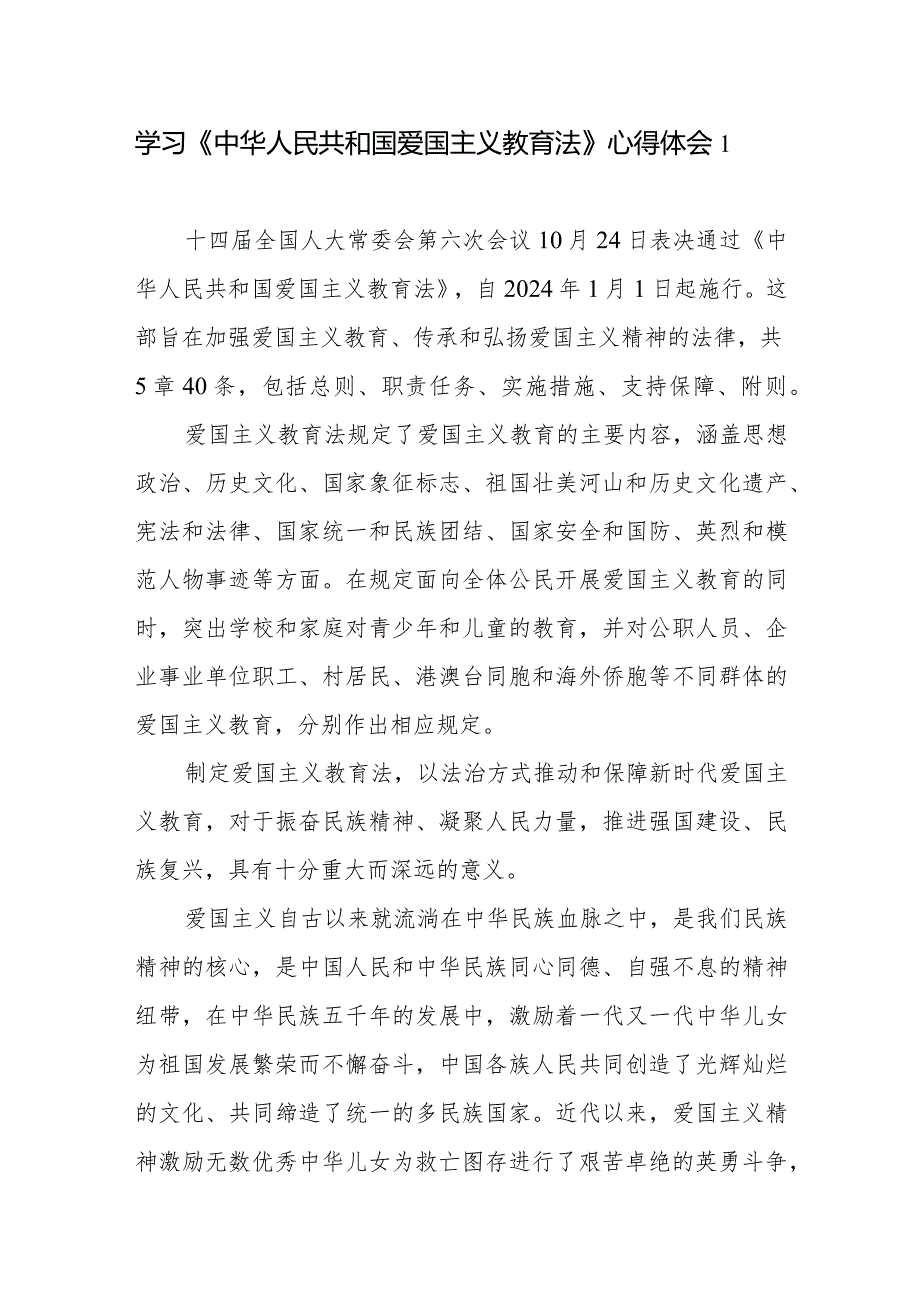 学习《中华人民共和国爱国主义教育法》心得体会 1
十四届全国人大常委会第六次会议 10 月 24 日表决通过《中
华人民共和国爱国主义教育法》，自 2024 年 1 月 1 日起施行。这
部旨在加强爱国主义教育、传承和弘扬爱国主义精神的法律，共
5 章 40 条，包括总则、职责任务、实施措施、支持保障、附则。
爱国主义教育法规定了爱国主义教育的主要内容，涵盖思想
政治、历史文化、国家象征标志、祖国壮美河山和历史文化遗产、
宪法和法律、国家统一和民族团结、国家安全和国防、英烈和模
范人物事迹等方面。在规定面向全体公民开展爱国主义教育的同
时，突出学校和家庭对青少年和儿童的教育，并对公职人员、企
业事业单位职工、村居民、港澳台同胞和海外侨胞等不同群体的
爱国主义教育，分别作出相应规定。
制定爱国主义教育法，以法治方式推动和保障新时代爱国主
义教育，对于振奋民族精神、凝聚人民力量，推进强国建设、民
族复兴，具有十分重大而深远的意义。
爱国主义自古以来就流淌在中华民族血脉之中，是我们民族
精神的核心，是中国人民和中华民族同心同德、自强不息的精神
纽带，在中华民族五千年的发展中，激励着一代又一代中华儿女
为祖国发展繁荣而不懈奋斗，中国各族人民共同创造了光辉灿烂
的文化、共同缔造了统一的多民族国家。近代以来，爱国主义精
神激励无数优秀中华儿女为救亡图存进行了艰苦卓绝的英勇斗争，